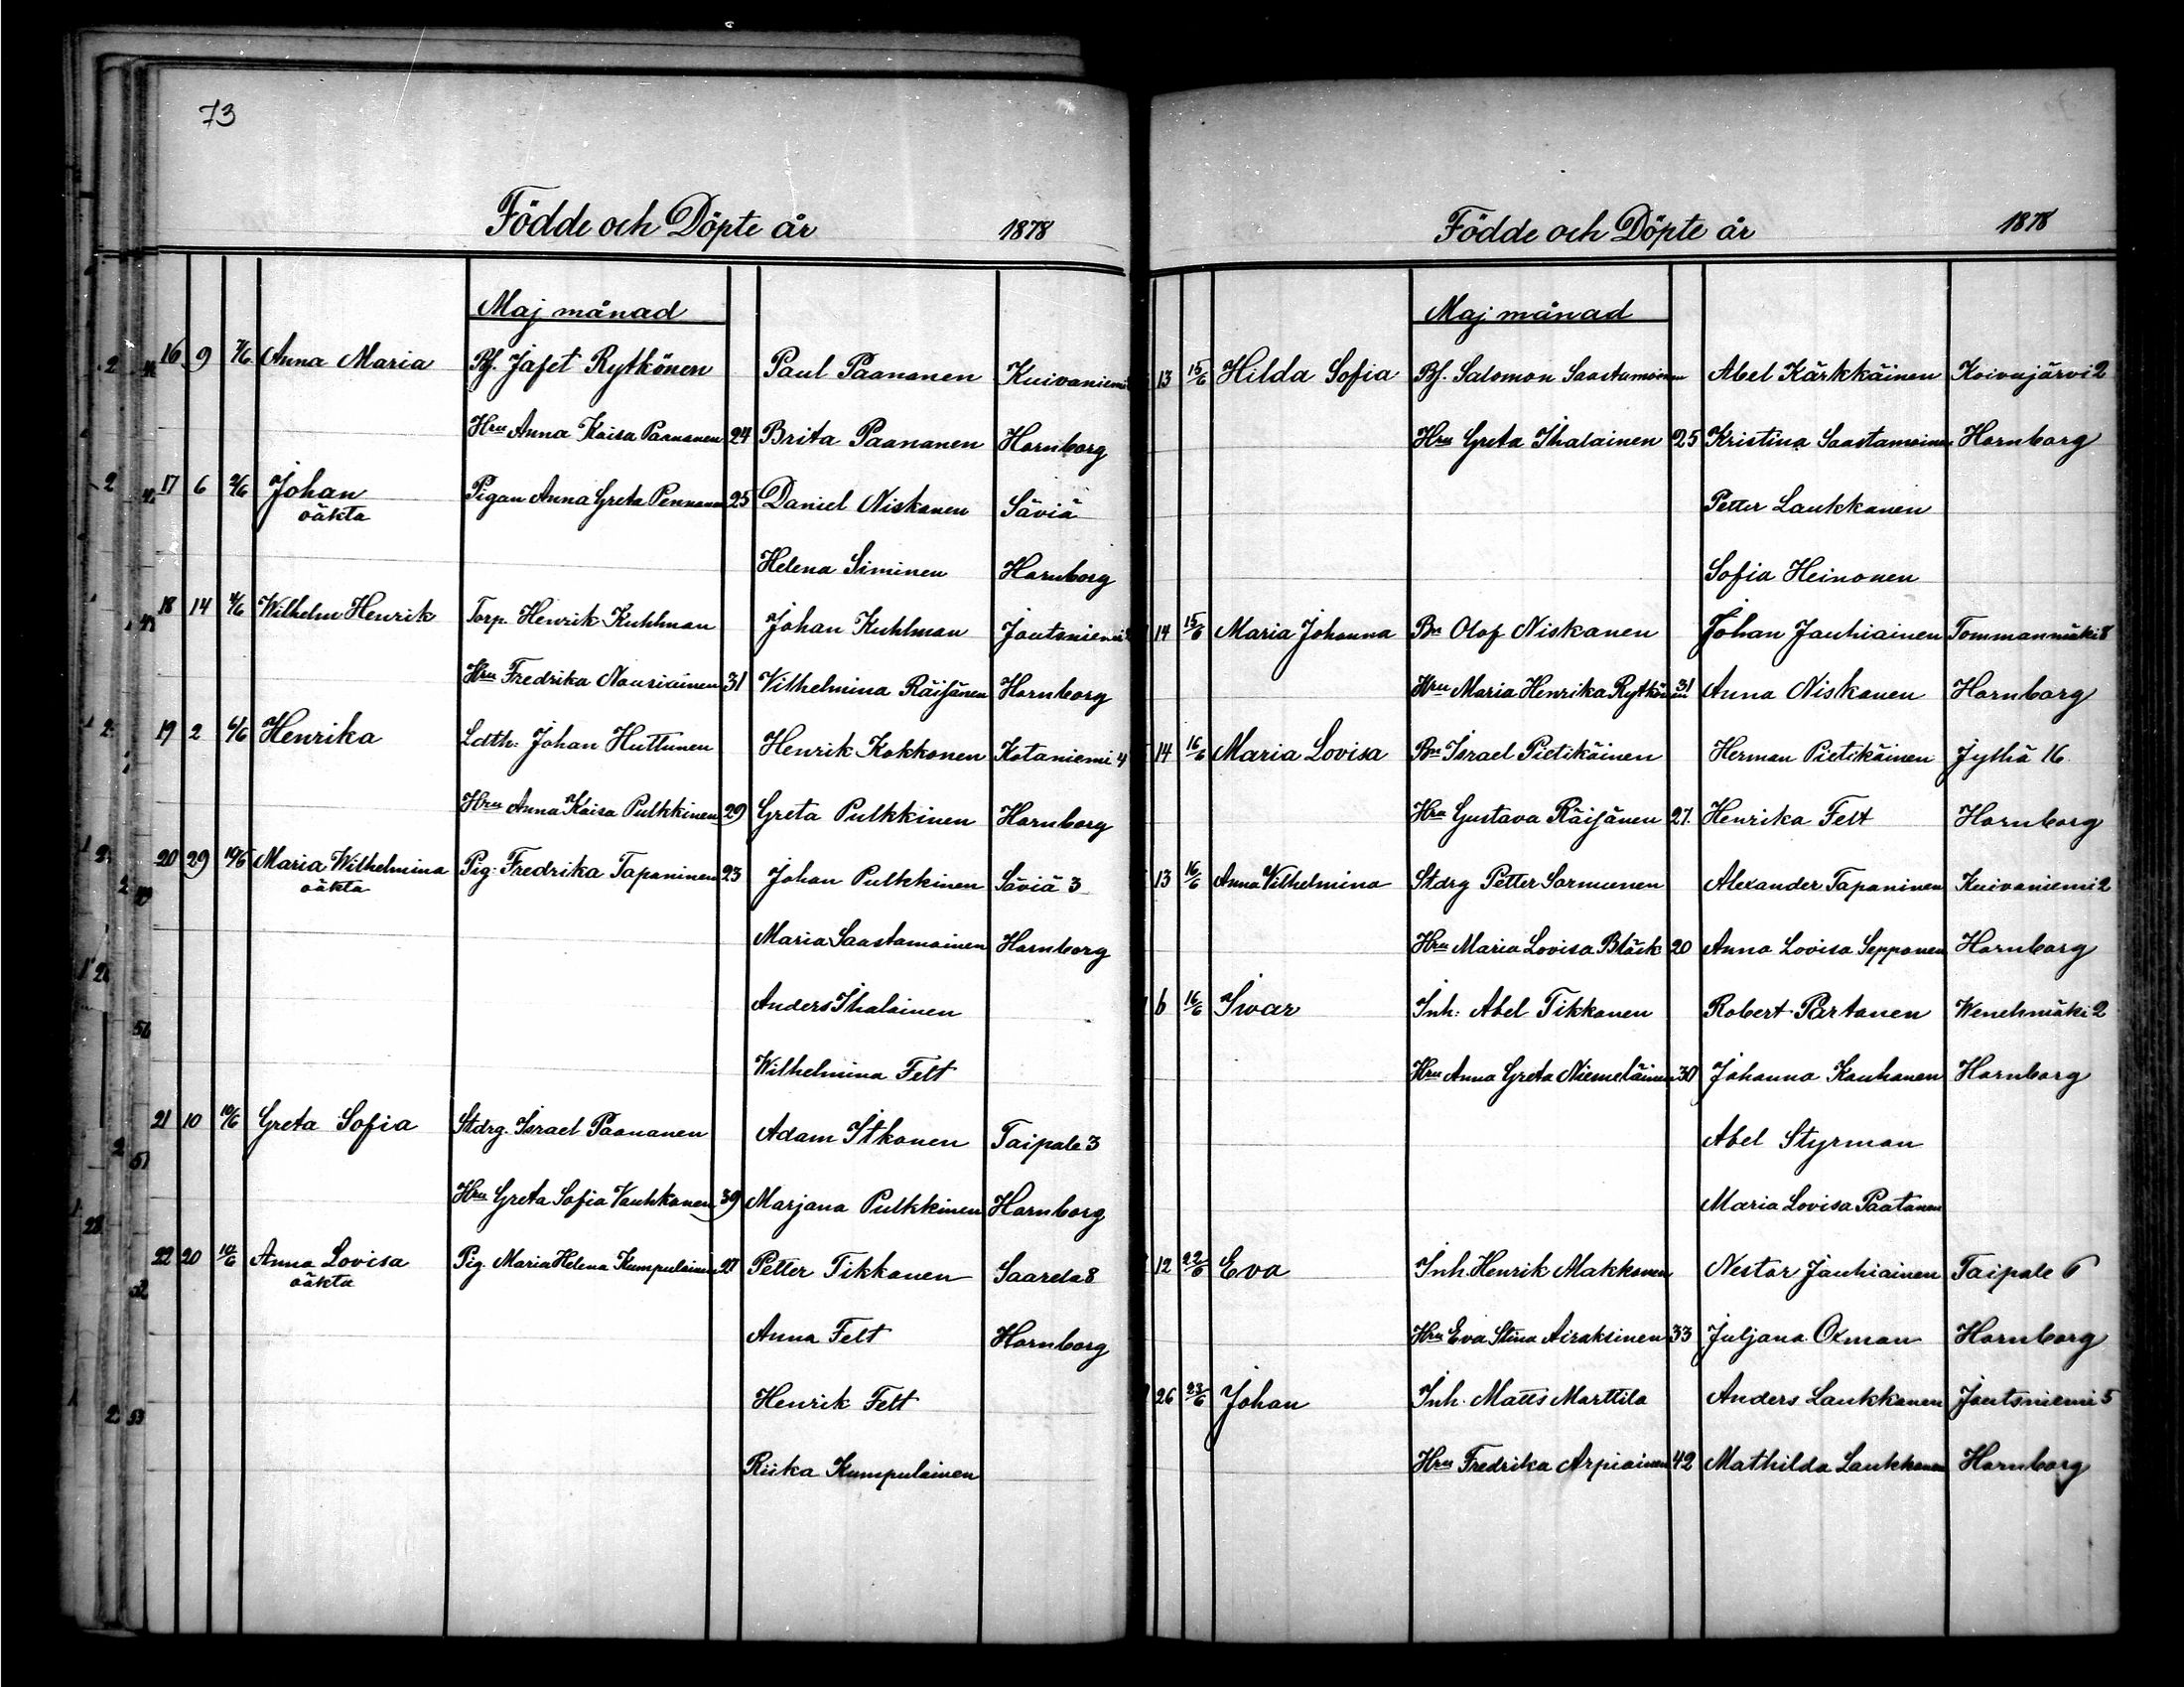 73
Födde och Döpte år 1878
Maj månad
16 9 Anna Maria Bf. Jafet Rytkönen Paul Paananen Kuivaniemi
Hru Anna Kaisa Paananen 24 Brita Paananen Hornborg
17 6 2/6 Johan Pigan Anna Greta Pennanen 25 Daniel Niskanen Säviä
oäkta
Helena Siminen Hornborg
18 14 4/6 Wilhelm Henrik Torp. Henrik Kuhlman Johan Kuhlman Joutsniemi
Hru Fredrika Nousiainen 31 Vilhelmina Räisänen Hornborg
19 2 6/6 Henrika Ldth: Johan Huttunen Henrik Kokkonen Kotaniemi 4
Hru Anna Kaisa Pulkkinen 29 Greta Pulkkinen Hornborg
20 29 10/6 Maria Wilhelmina Pig. Fredrika Tapaninen 23 Johan Pulkkinen Säviä 3
oäkta
Maria Saastamoinen Hornborg
Anders Ihalainen
Wilhelmina Felt
21 10 10/6 Greta Sofia Stdrg. Israel Paananen Adam Itkonen Taipale 3
Hru Greta Sofia Vauhkonen 39 Marjana Pulkkinen Hornborg
22 20 14/6 Anna Lovisa Pig. Maria Helena Kumpulainen 27 Petter Tikkanen Saarela 8
oäkta
Anna Felt Hornborg
Henrik Felt
Riika Kumpulainen
Födde och Döpte år 1878
Maj månad
13 15/6 Hilda Sofia Bf. Salomon Saastamoinen Abel Kärkkäinen Koivujärvi 2
Hru Greta Ihalainen 25 Kristina Saastamoinen Hornborg
Petter Laukkanen
Sofia Heinonen
14 15/6 Maria Johanna Bn Olof Niskanen Johan Jauhiainen Tommanmäki 8
Hru Maria Henrika Rytkönen 31 Anna Niskanen Hornborg
14 16/6 Maria Lovisa Bn Israel Pietikäinen Herman Pietikäinen Jylhä 16
Hru Gustava Räisänen 27. Henrika Felt Hornborg
13 16/6 Anna Vilhelmina Stdrg Petter Sormunen Alexander Tapaninen Kuivaniemi 2
Hru Maria Lovisa Bläck 20 Anna Lovisa Sepponen Hornborg
6 16/6 Ivar Inh: Abel Tikkanen Robert Partanen Wenehmäki 2
Hru Anna Greta Niemeläinen 30 Johanna Kauhanen Hornborg
Abel Styrman
Maria Lovisa Paatanen
12 22/6 Eva Inh. Henrik Makkonen Nestor Jauhiainen Taipale 6
Hru Eva Stina Airaksinen 33 Juljana Oxman Hornborg
26 23/6 Johan Inh. Matts Marttila Anders Laukkanen Joutsniemi 5
Hru Fredrika Arpiainen 42 Mathilda Laukkanen Hornborg